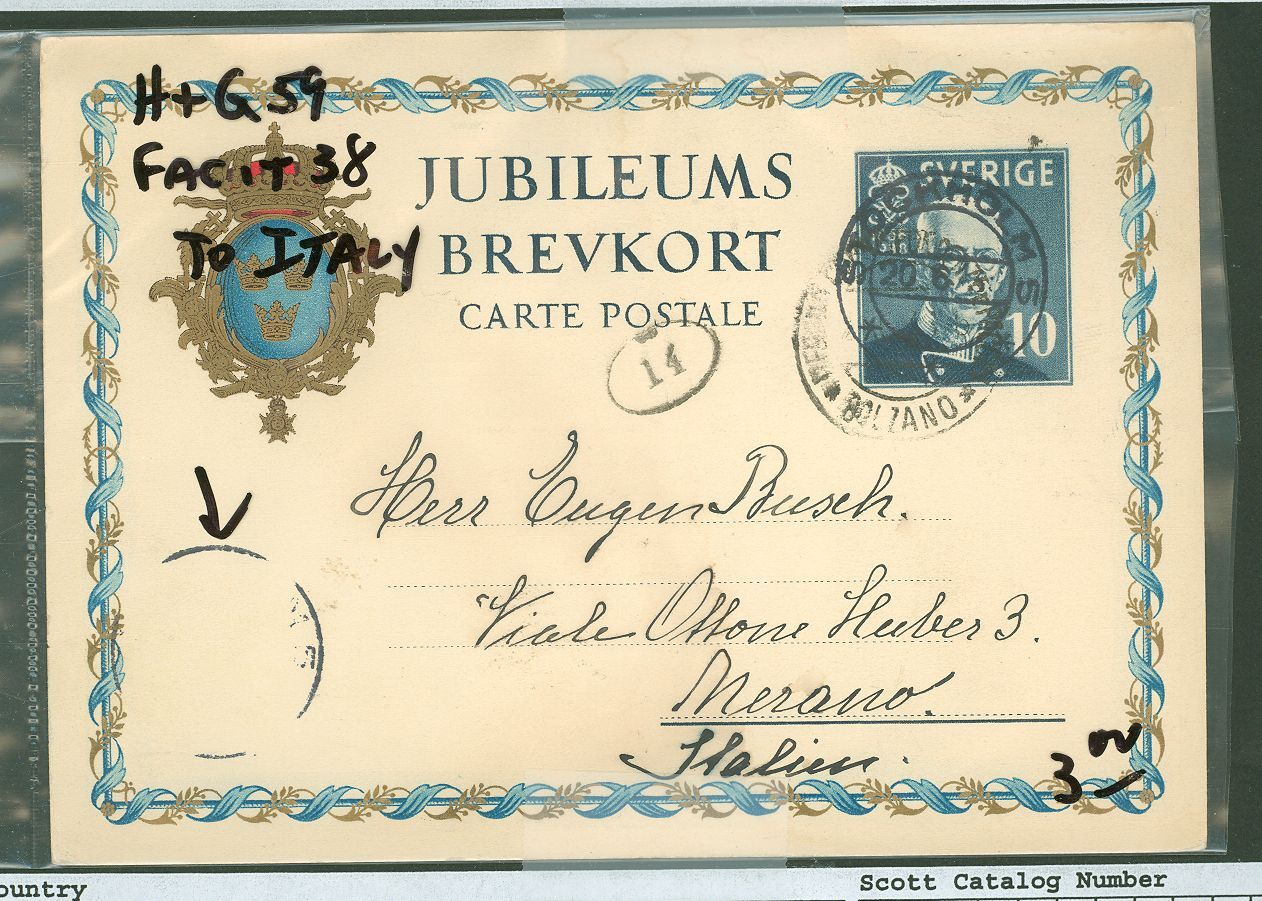 H+G 59
FACIT 38
TO ITALY
JUBILEUMS
BREVKORT
CARTE POSTALE
SVERIGE
10
STOCKHOLM 5
20 6 3
BOLZANO
14
Herr Eugen Busch.
Viale Ottone Huber 3.
Merano.
Italien.
3 00
ountry
Scott Catalog Number